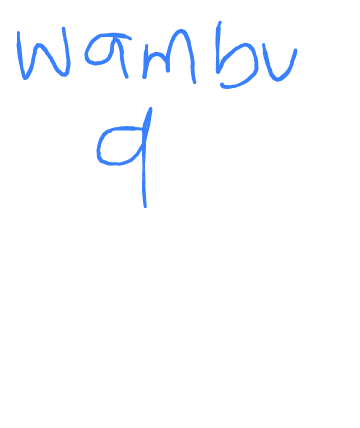 wambu
9